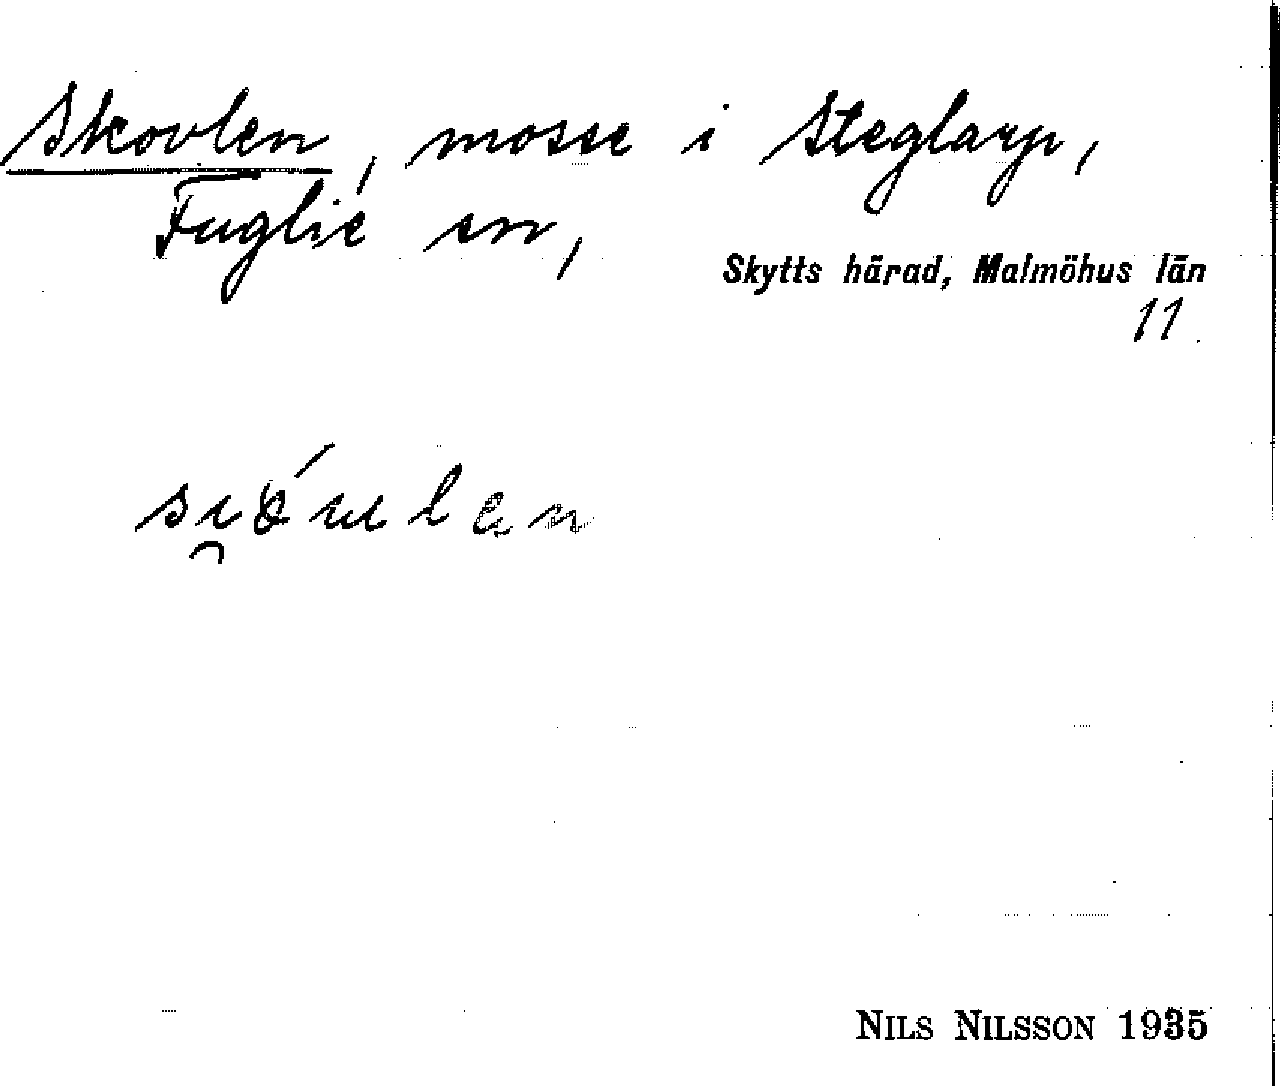 Skovlen, mosse i Steglarp,
Fuglie sn,
Skytts härad, Malmöhus län
11
NILS NILSSON 1935